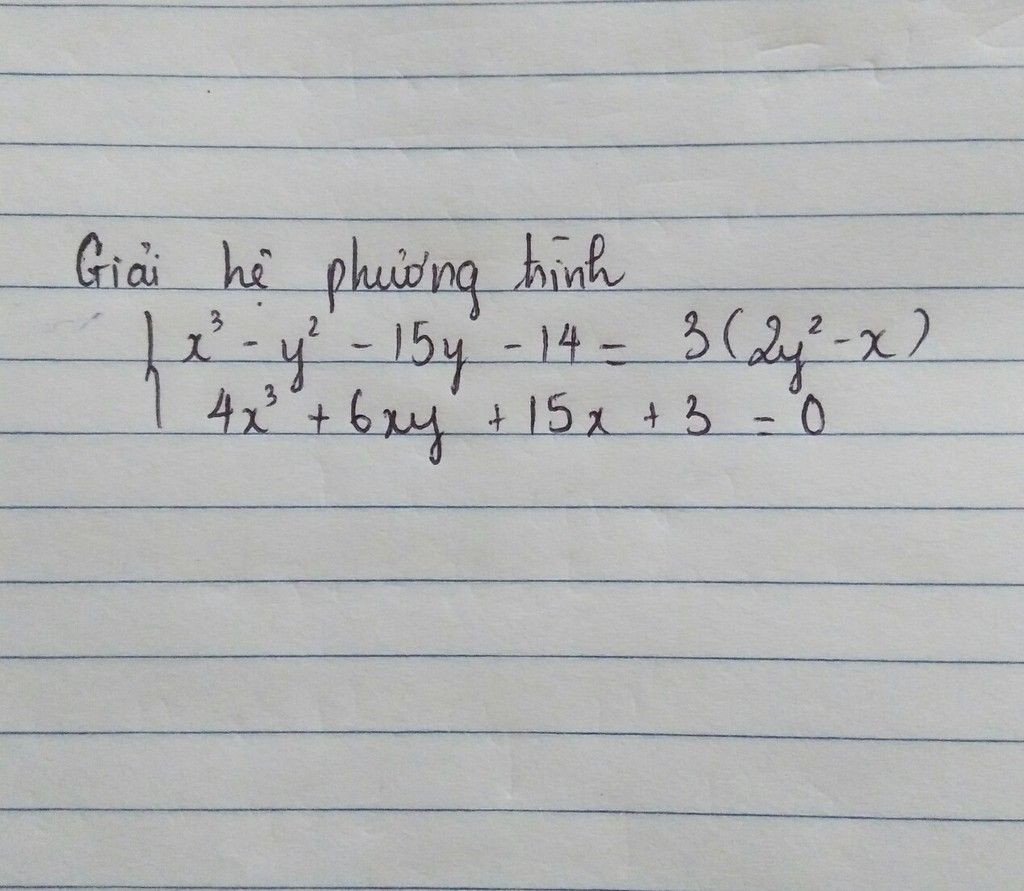 Giải hệ phương trình
x³ - y² - 15y - 14 = 3(2y² - x)
4x³ + 6xy + 15x + 3 = 0